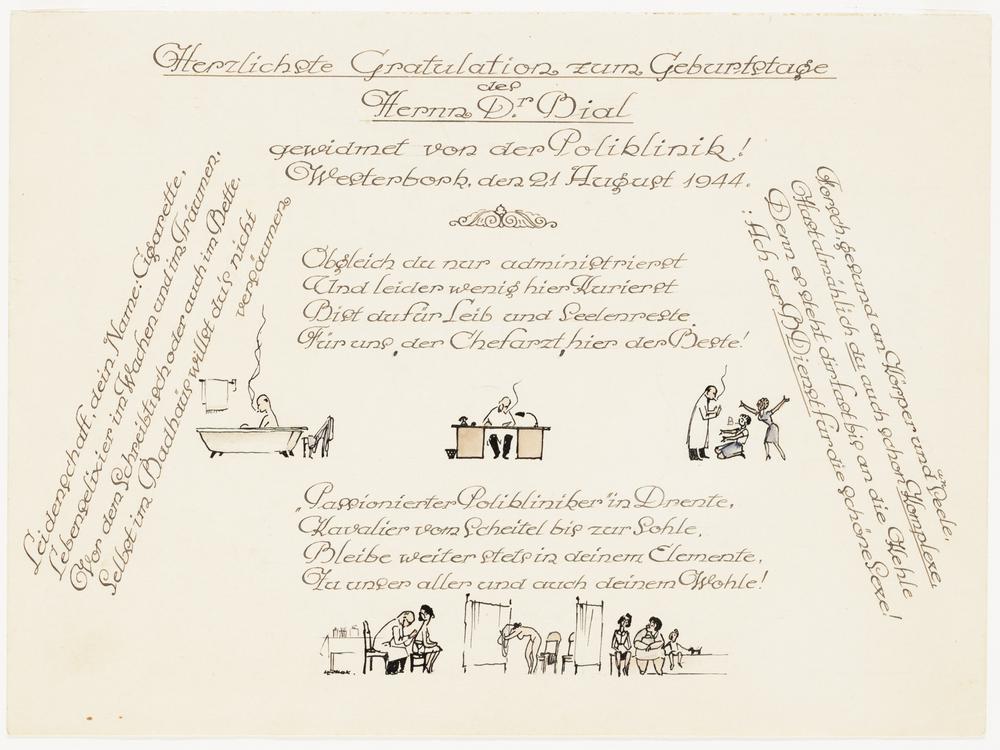 Herzlichste Gratulation zum Geburtstage
des
Herrn Dr. Bial
gewidmet von der Poliklinik!
Westerbork, den 21 August 1944.
Leidenschaft, dein Name: Cigarette,
Lebenselixier im Wachen und im Träumen,
Vor dem Schreibtisch oder auch im Bette,
Selbst im Badhaus willst das nicht
versäumen
Obgleich du nur administrierst
Und leider wenig hier kurierst
Bist du für Leib und Seelenreste
Für uns „der Chefarzt„ hier der Beste!
Forsch gesund an Körper und an Seele,
Hast almählich du auch schon Komplexe,
Denn es steht dir fast bis an die Kehle
: Ach der B Dienst für die schöne Sexe!
„Passionierter Polikliniker" in Drente,
Kavalier vom Scheitel bis zur Sohle,
Bleibe weiter stets in deinem Elemente,
Zu unser aller und auch deinem Wohle!